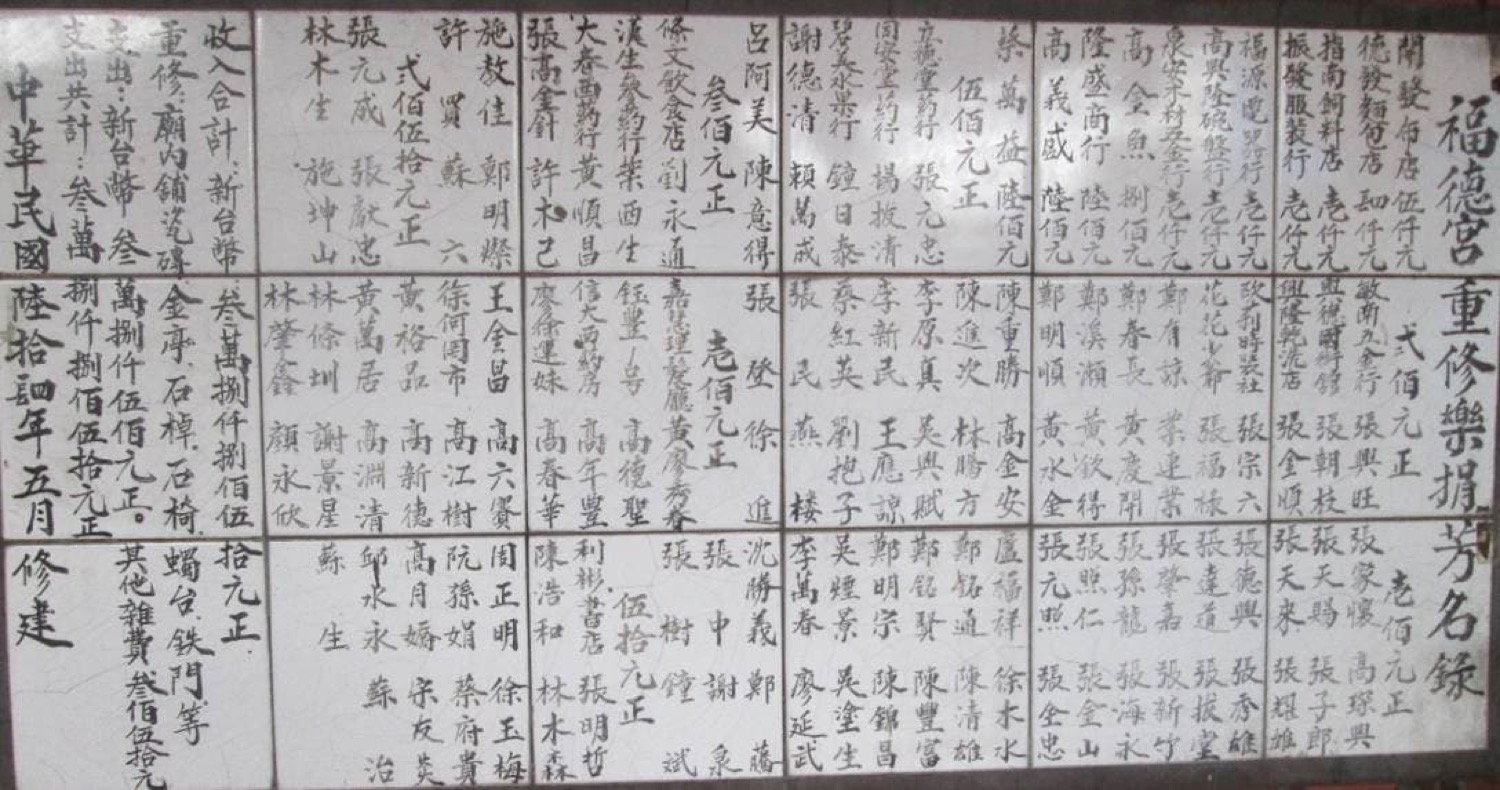 福德宮重修樂捐芳名錄
開發布店伍仟元
德發麵包店四仟元
指南飼料店壱仟元
振發服裝行壱仟元
福源電器行壱仟元
高興隆碗盤行壱仟元
泉安木材五金行壱仟元
高金魚 捌佰元
隆盛商行 陸佰元
高義盛 陸佰元
蔡萬益 陸佰元
伍佰元正
立德堂葯行 張元忠
同安堂葯行 楊披清
碧美水果行 鐘日泰
謝德清 賴萬成
呂阿美 陳意得
叁佰元正
條文飲食店劉永通
漢生參葯行葉酉生
大春西葯行黃順昌
張高金針 許木己
施敖佳 鄭明燦
許買 蘇六
弍佰伍拾元正
張元成 張献忠
林木生 施坤山
弍佰元正
敏南五金行 張興旺
興德國術舘 張朝枝
興隆乾洗店 張金順
欧利時裝社 張宗六
花花少爺 張福祿
鄭有諒 葉連業
鄭春長 黃慶開
鄭溪瀬 黃欽得
鄭明順 黃水金
陳重勝 高金安
陳進次 林勝方
李原真 吳興賦
李新民 王應諒
蔡紅英 劉抱子
張民 燕楼
張登 徐進
壱佰元正
嘉慧理髮廳黃廖秀春
鈺豐一号 高德聖
信大西葯房 高年豐
廖徐運妹 高春華
王金昌 高六寶
徐何罔市 高江樹
黃裕品 高新德
黃萬居 高淵清
林條圳 謝景星
林肇鑫 顏永欣
壱佰元正
張家懷 高琛興
張天賜 張子郎
張天來 張耀雄
張德興 張秀雄
張達道 張拔堂
張肇嘉 張新竹
張孫龍 張海永
張照仁 張金山
張元照 張金忠
盧福祥 徐木水
鄭銘通 陳清雄
鄭銘賢 陳豐富
鄭明宗 陳錦昌
吳煙景 吳塗生
李萬春 廖延武
沈勝義 鄭藤
張中 謝泉
張樹 鐘斌
伍拾元正
利彬書店 張明哲
陳浩和 林木森
周正明 徐玉梅
阮孫娟 蔡府貴
高月嬌 宋友英
邱水永 蘇治
蘇生
收入合計：新台幣：叁萬捌仟捌佰伍拾元正
重修：廟內舖瓷磚.金亭.石棹.石椅.蠋台.鉄門.等
支出：新台幣 叁萬捌仟伍佰元正。其他雜費叁佰伍拾元
支出共計：叁萬捌仟捌佰伍拾元正
中華民國陸拾四年五月修建